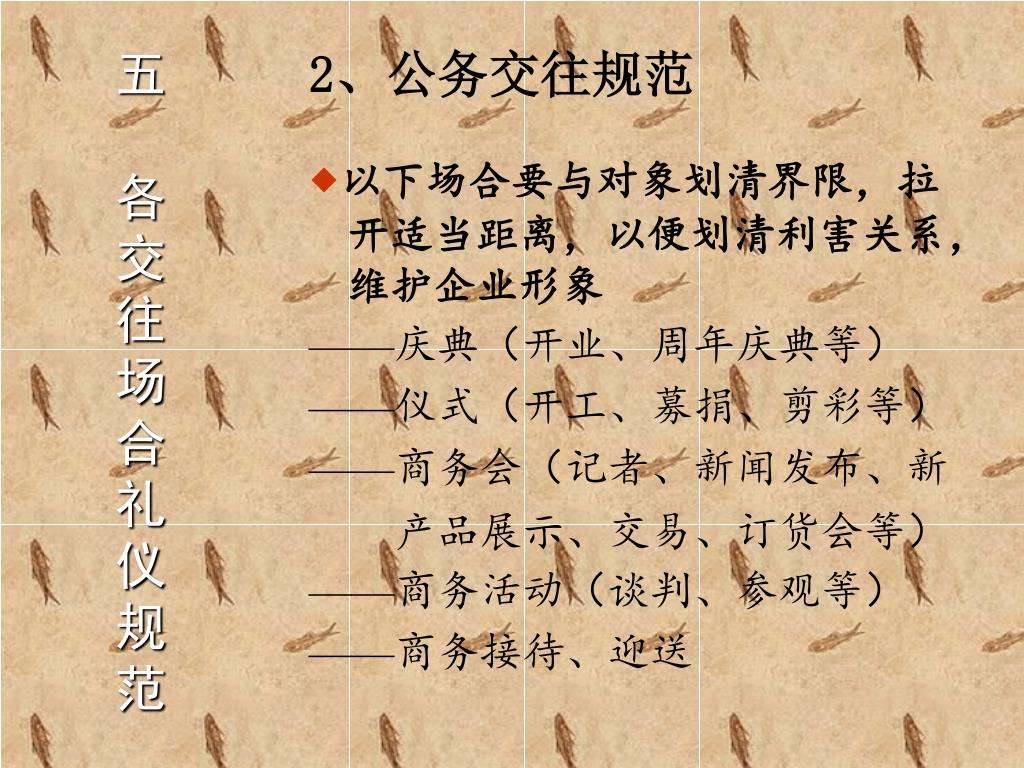 五
各交往场合礼仪规范
2、公务交往规范
◆以下场合要与对象划清界限，拉
开适当距离，以便划清利害关系，
维护企业形象
——庆典（开业、周年庆典等）
——仪式（开工、募捐、剪彩等）
——商务会（记者、新闻发布、新
产品展示、交易、订货会等）
——商务活动（谈判、参观等）
——商务接待、迎送